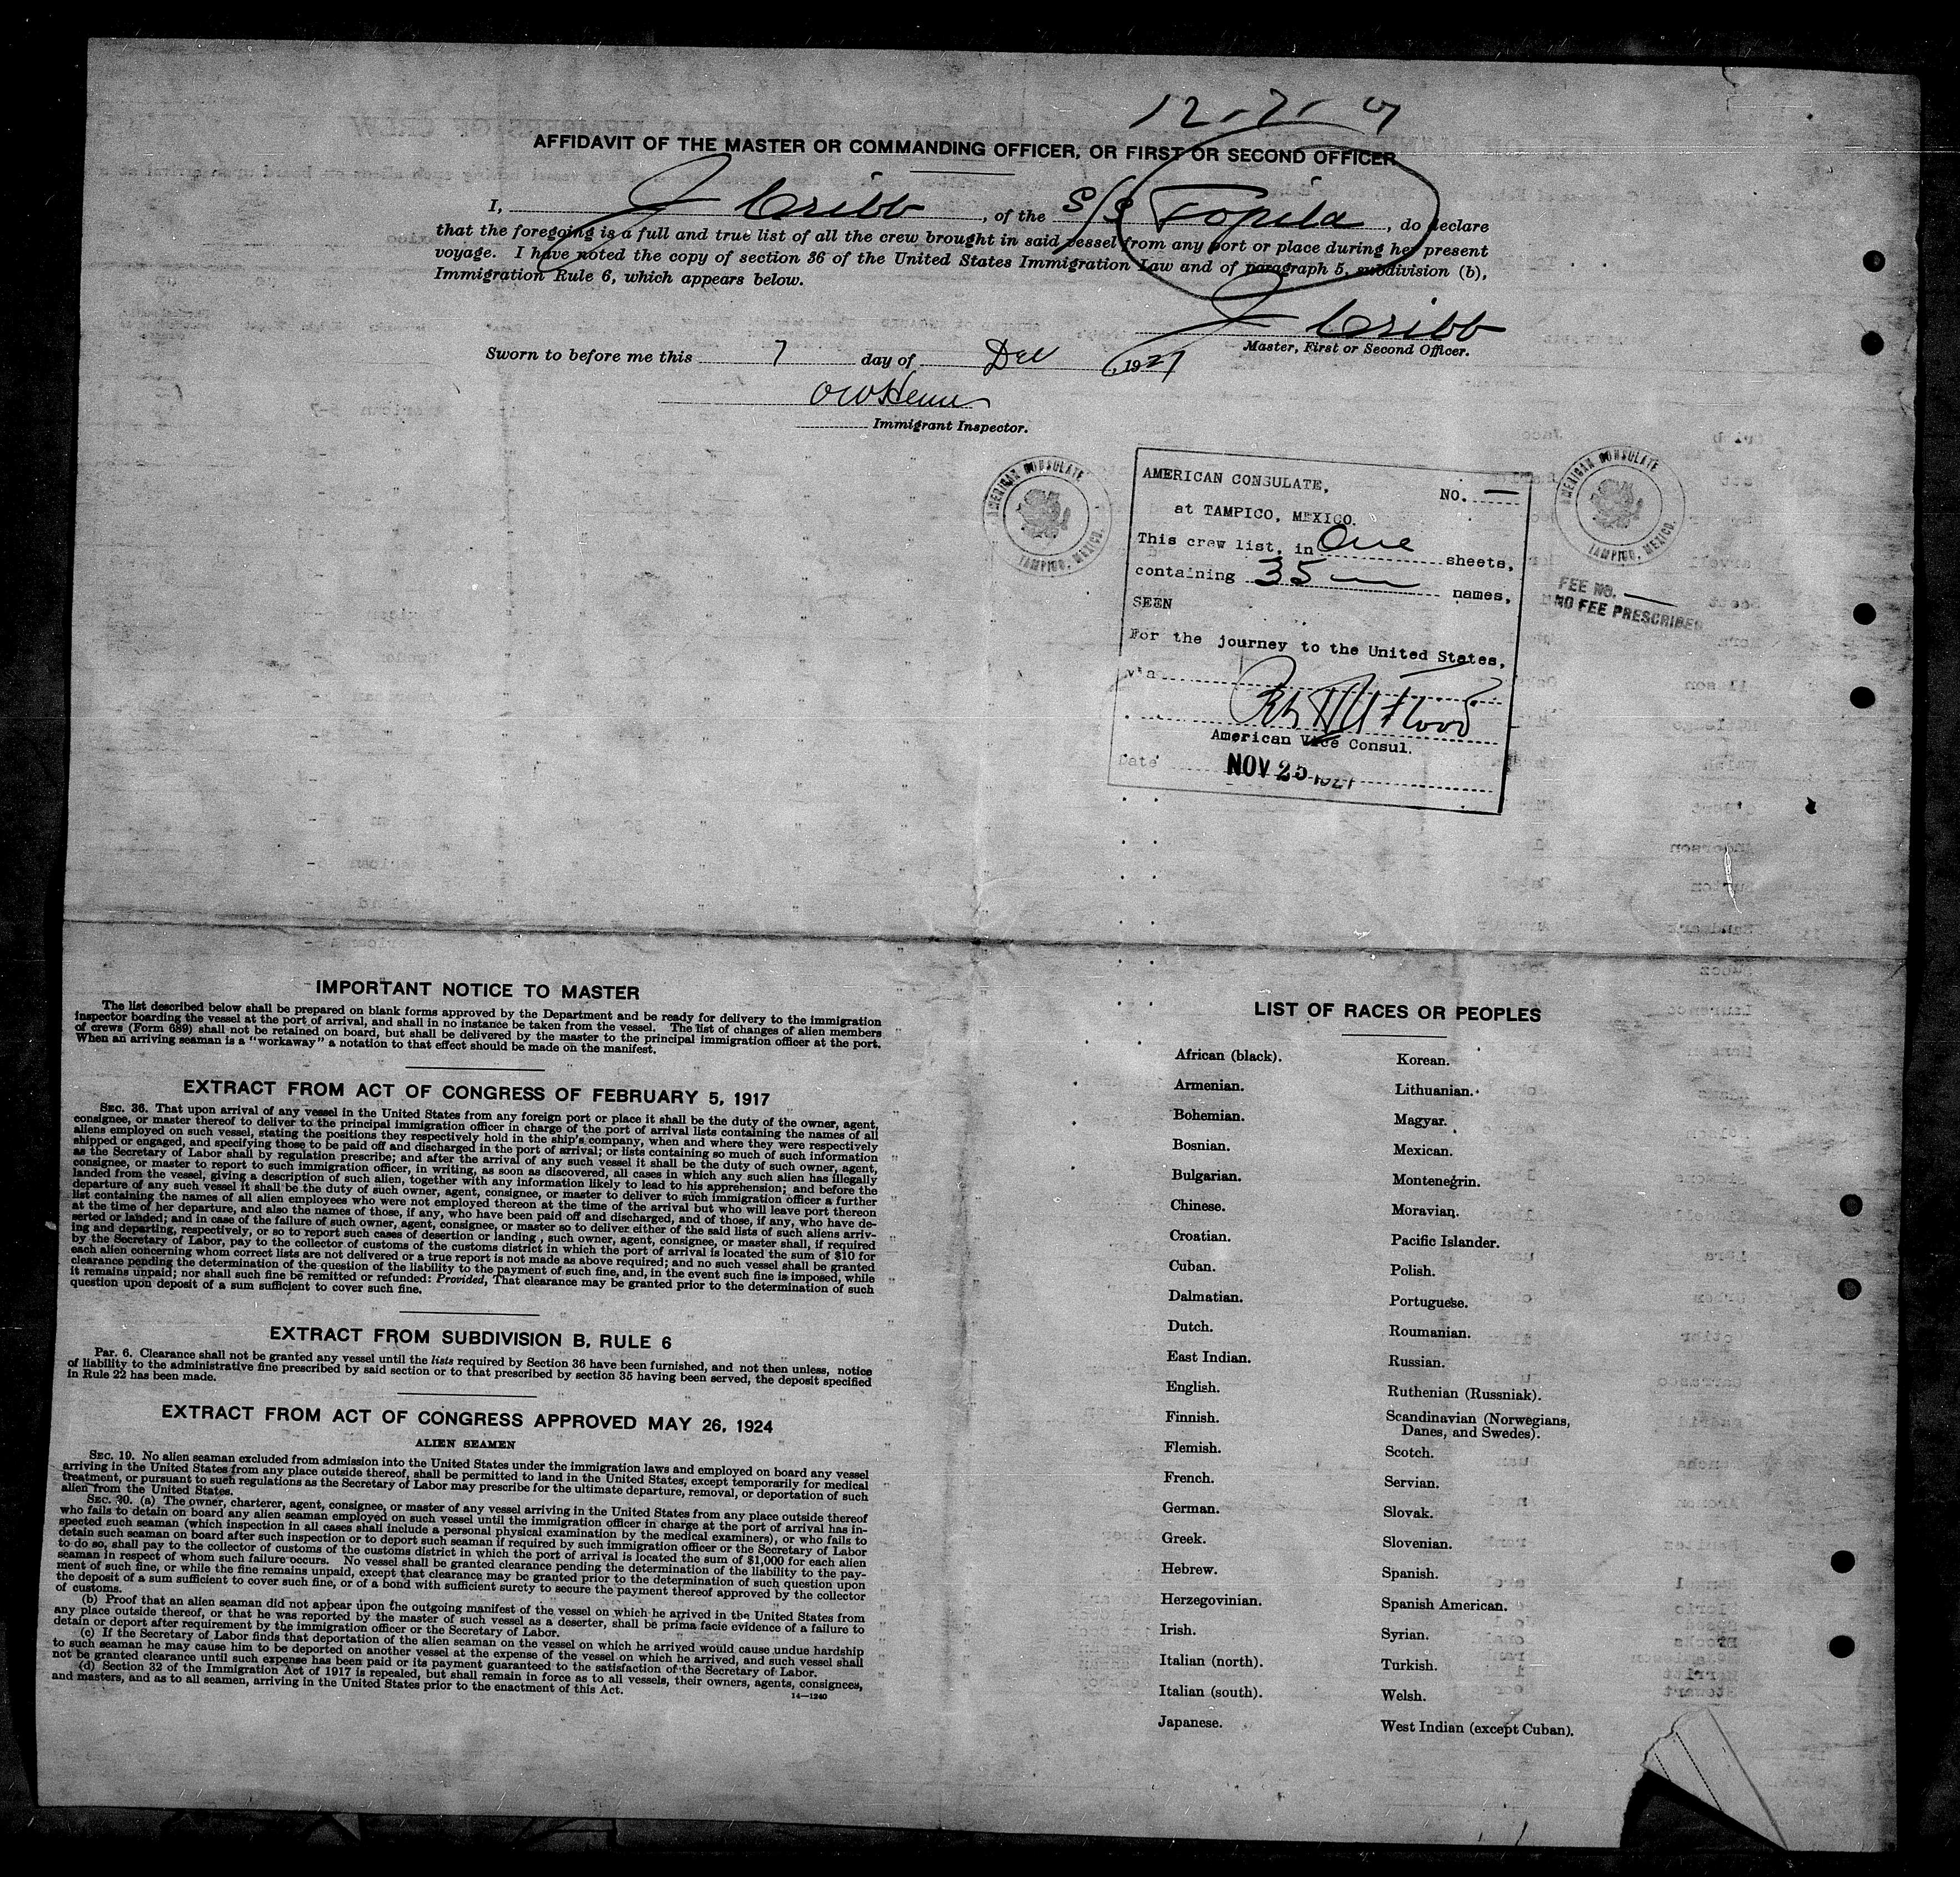 12-7-27
AFFIDAVIT OF THE MASTER OR COMMANDING OFFICER, OR FIRST OR SECOND OFFICER
I, J Cribb, of the S/S Topila, do declare
that the foregoing is a full and true list of all the crew brought in said vessel from any port or place during her present
voyage. I have noted the copy of section 36 of the United States Immigration Law and of paragraph 5, subdivision (b),
Immigration Rule 6, which appears below.
J Cribb
Master, First or Second Officer.
Sworn to before me this 7 day of Dec, 1927
Immigrant Inspector.
AMERICAN CONSULATE
TAMPICO, MEXICO.
AMERICAN CONSULATE, NO. —
at TAMPICO, MEXICO.
This crew list, in One sheets,
containing 35 — names,
SEEN
For the journey to the United States,
via
American Vice Consul.
Date NOV 25 1927
AMERICAN CONSULATE
TAMPICO, MEXICO.
FEE NO. —
NO FEE PRESCRIBED
IMPORTANT NOTICE TO MASTER
The list described below shall be prepared on blank forms approved by the Department and be ready for delivery to the immigration
inspector boarding the vessel at the port of arrival, and shall in no instance be taken from the vessel. The list of changes of alien members
of crews (Form 689) shall not be retained on board, but shall be delivered by the master to the principal immigration officer at the port.
When an arriving seaman is a "workaway" a notation to that effect should be made on the manifest.
EXTRACT FROM ACT OF CONGRESS OF FEBRUARY 5, 1917
SEC. 36. That upon arrival of any vessel in the United States from any foreign port or place it shall be the duty of the owner, agent,
consignee, or master thereof to deliver to the principal immigration officer in charge of the port of arrival lists containing the names of all
aliens employed on such vessel, stating the positions they respectively hold in the ship's company, when and where they were respectively
shipped or engaged, and specifying those to be paid off and discharged in the port of arrival; or lists containing so much of such information
as the Secretary of Labor shall by regulation prescribe; and after the arrival of any such vessel it shall be the duty of such owner, agent,
consignee, or master to report to such immigration officer, in writing, as soon as discovered, all cases in which any such alien has illegally
landed from the vessel, giving a description of such alien, together with any information likely to lead to his apprehension; and before the
departure of any such vessel it shall be the duty of such owner, agent, consignee, or master to deliver to such immigration officer a further
list containing the names of all alien employees who were not employed thereon at the time of the arrival but who will leave port thereon
at the time of her departure, and also the names of those, if any, who have been paid off and discharged, and of those, if any, who have de-
serted or landed; and in case of the failure of such owner, agent, consignee, or master so to deliver either of the said lists of such aliens arriv-
ing and departing, respectively, or so to report such cases of desertion or landing, such owner, agent, consignee, or master shall, if required
by the Secretary of Labor, pay to the collector of customs of the customs district in which the port of arrival is located the sum of $10 for
each alien concerning whom correct lists are not delivered or a true report is not made as above required; and no such vessel shall be granted
clearance pending the determination of the question of the liability to the payment of such fine, and, in the event such fine is imposed, while
it remains unpaid; nor shall such fine be remitted or refunded: Provided, That clearance may be granted prior to the determination of such
question upon deposit of a sum sufficient to cover such fine.
EXTRACT FROM SUBDIVISION B, RULE 6
Par. 6. Clearance shall not be granted any vessel until the lists required by Section 36 have been furnished, and not then unless, notice
of liability to the administrative fine prescribed by said section or to that prescribed by section 35 having been served, the deposit specified
in Rule 22 has been made.
EXTRACT FROM ACT OF CONGRESS APPROVED MAY 26, 1924
ALIEN SEAMEN
SEC. 19. No alien seaman excluded from admission into the United States under the immigration laws and employed on board any vessel
arriving in the United States from any place outside thereof, shall be permitted to land in the United States, except temporarily for medical
treatment, or pursuant to such regulations as the Secretary of Labor may prescribe for the ultimate departure, removal, or deportation of such
alien from the United States.
SEC. 20. (a) The owner, charterer, agent, consignee, or master of any vessel arriving in the United States from any place outside thereof
who fails to detain on board any alien seaman employed on such vessel until the immigration officer in charge at the port of arrival has in-
spected such seaman (which inspection in all cases shall include a personal physical examination by the medical examiners), or who fails to
detain such seaman on board after such inspection or to deport such seaman if required by such immigration officer or the Secretary of Labor
to do so, shall pay to the collector of customs of the customs district in which the port of arrival is located the sum of $1,000 for each alien
seaman in respect of whom such failure occurs. No vessel shall be granted clearance pending the determination of the liability to the pay-
ment of such fine, or while the fine remains unpaid, except that clearance may be granted prior to the determination of such question upon
the deposit of a sum sufficient to cover such fine, or of a bond with sufficient surety to secure the payment thereof approved by the collector
of customs.
(b) Proof that an alien seaman did not appear upon the outgoing manifest of the vessel on which he arrived in the United States from
any place outside thereof, or that he was reported by the master of such vessel as a deserter, shall be prima facie evidence of a failure to
detain or deport after requirement by the immigration officer or the Secretary of Labor.
(c) If the Secretary of Labor finds that deportation of the alien seaman on the vessel on which he arrived would cause undue hardship
to such seaman he may cause him to be deported on another vessel at the expense of the vessel on which he arrived, and such vessel shall
not be granted clearance until such expense has been paid or its payment guaranteed to the satisfaction of the Secretary of Labor.
(d) Section 32 of the Immigration Act of 1917 is repealed, but shall remain in force as to all vessels, their owners, agents, consignees,
and masters, and as to all seamen, arriving in the United States prior to the enactment of this Act.
14—1240
LIST OF RACES OR PEOPLES
African (black).
Armenian.
Bohemian.
Bosnian.
Bulgarian.
Chinese.
Croatian.
Cuban.
Dalmatian.
Dutch.
East Indian.
English.
Finnish.
Flemish.
French.
German.
Greek.
Hebrew.
Herzegovinian.
Irish.
Italian (north).
Italian (south).
Japanese.
Korean.
Lithuanian.
Magyar.
Mexican.
Montenegrin.
Moravian.
Pacific Islander.
Polish.
Portuguese.
Roumanian.
Russian.
Ruthenian (Russniak).
Scandinavian (Norwegians,
Danes, and Swedes).
Scotch.
Servian.
Slovak.
Slovenian.
Spanish.
Spanish American.
Syrian.
Turkish.
Welsh.
West Indian (except Cuban).